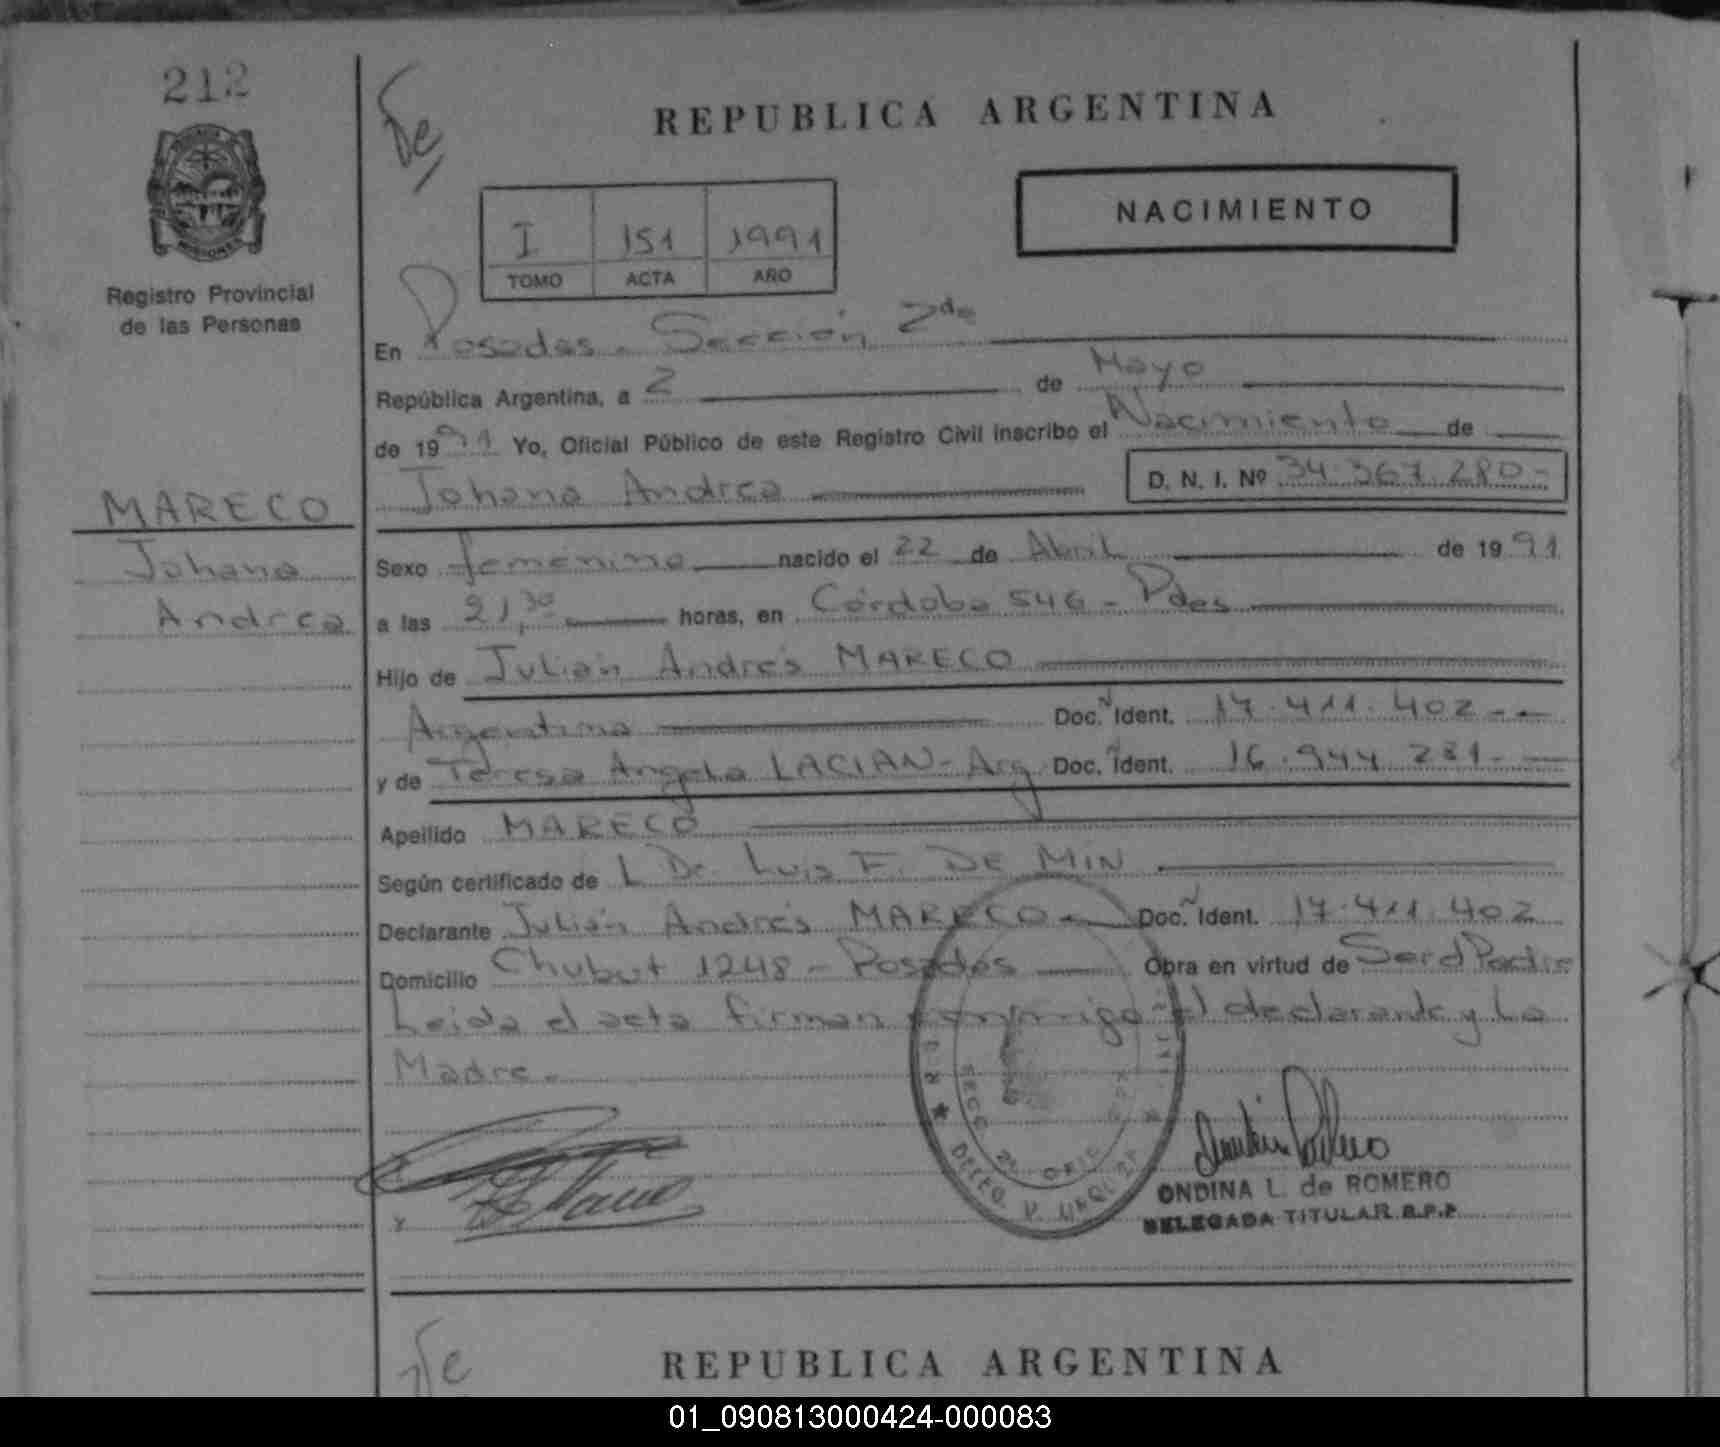 212
REPUBLICA ARGENTINA
NACIMIENTO
I 151 1991
TOMO ACTA AÑO
Registro Provincial
de las Personas
En Posadas - Sección 2da
República Argentina, a 2 de Mayo
de 1991 Yo, Oficial Público de este Registro Civil inscribo el Nacimiento de
Johana Andrea D. N. I. Nº 34.367.280-
MARECO
Johana
Andrea
Sexo femenino nacido el 22 de Abril de 1991
a las 21,30 horas, en Córdoba 546 - Pdas
Hijo de Julián Andrés MARECO
Argentino Doc. Ident. 17.411.402 -
y de Teresa Angela LACIAN - Arg Doc. Ident. 16.944.281 -
Apellido MARECO
Según certificado de L Dr. Luis F. DE MIN
Declarante Julián Andrés MARECO - Doc. Ident. 17.411.402
Domicilio Chubut 1248 - Posadas Obra en virtud de Ser el Padre
Leida el acta firman conmigo el declarante y la
Madre.
SECC. 2ª
DELEG. V. URQUIZA
ONDINA L. de ROMERO
DELEGADA TITULAR R.P.P.
REPUBLICA ARGENTINA
01_090813000424-000083